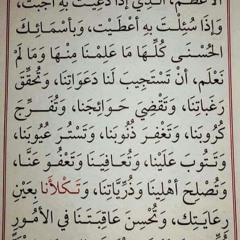 الأَعْظَمِ، الَّذِي إِذَا دُعِيتَ بِهِ أَجَبْتَ،
وَإِذَا سُئِلْتَ بِهِ أَعْطَيْتَ، وَبِأَسْمَائِكَ
الْحُسْنَى كُلِّهَا مَا عَلِمْنَا مِنْهَا وَمَا لَمْ
نَعْلَمْ، أَنْ تَسْتَجِيبَ لَنَا دَعَوَاتِنَا، وَتُحَقِّقَ
رَغَبَاتِنَا، وَتَقْضِيَ حَوَائِجَنَا، وَتُفَرِّجَ
كُرُوبَنَا، وَتَغْفِرَ ذُنُوبَنَا، وَتَسْتُرَ عُيُوبَنَا،
وَتَتُوبَ عَلَيْنَا، وَتُعَافِيَنَا وَتَعْفُوَ عَنَّا،
وَتُصْلِحَ أَهْلِينَا وَذُرِّيَّاتِنَا، وَتَكْلَأَنَا بِعَيْنِ
رِعَايَتِكَ، وَتُحْسِنَ عَاقِبَتَنَا فِي الأُمُورِ